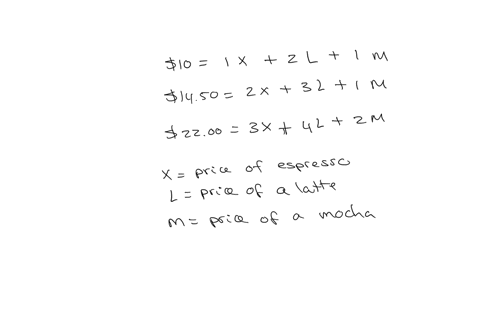 $10 = 1 X + 2 L + 1 M
$14.50 = 2x + 3L + 1 M
$22.00 = 3X + 4L + 2M
X = price of espresso
L = price of a latte
M = price of a mocha